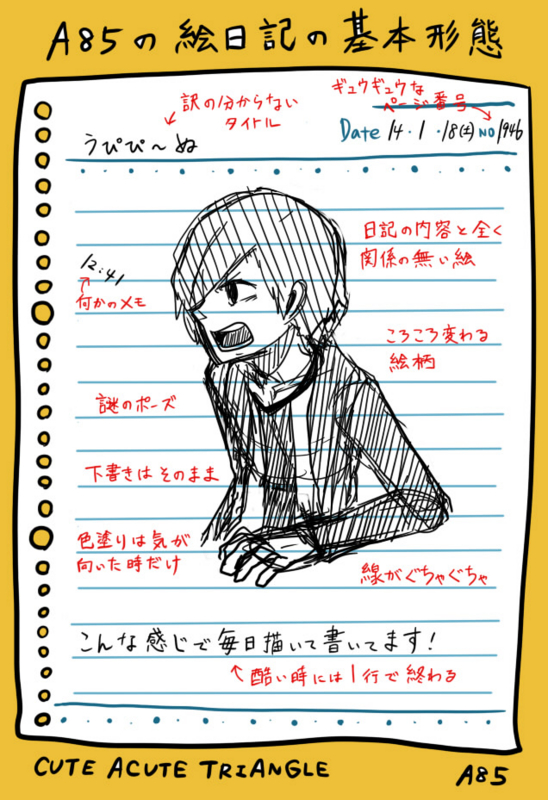 A85の絵日記の基本形態
訳の分からない
タイトル
ギュウギュウな
ページ番号
うぴぴ〜ぬ
Date 14・1・18(土) NO 1946
日記の内容と全く
関係の無い絵
12:41
何かのメモ
ころころ変わる
絵柄
謎のポーズ
下書きはそのまま
色塗りは気が
向いた時だけ
線がぐちゃぐちゃ
こんな感じで毎日描いて書いてます!
酷い時には1行で終わる
CUTE ACUTE TRiANGLE
A85